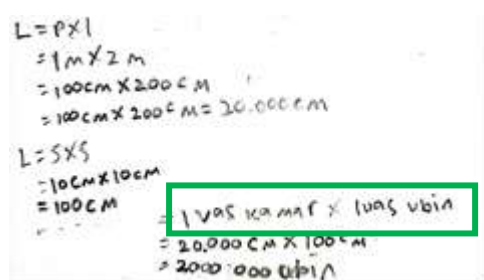 L = P X l
= 1 m X 2 m
= 100 cm X 200 cm
= 100 cm X 200 cm = 20.000 cm
L = S X S
= 10 cm X 10 cm
= 100 cm
= luas kamar X luas ubin
= 20.000 cm X 100 cm
= 2000.000 ubin